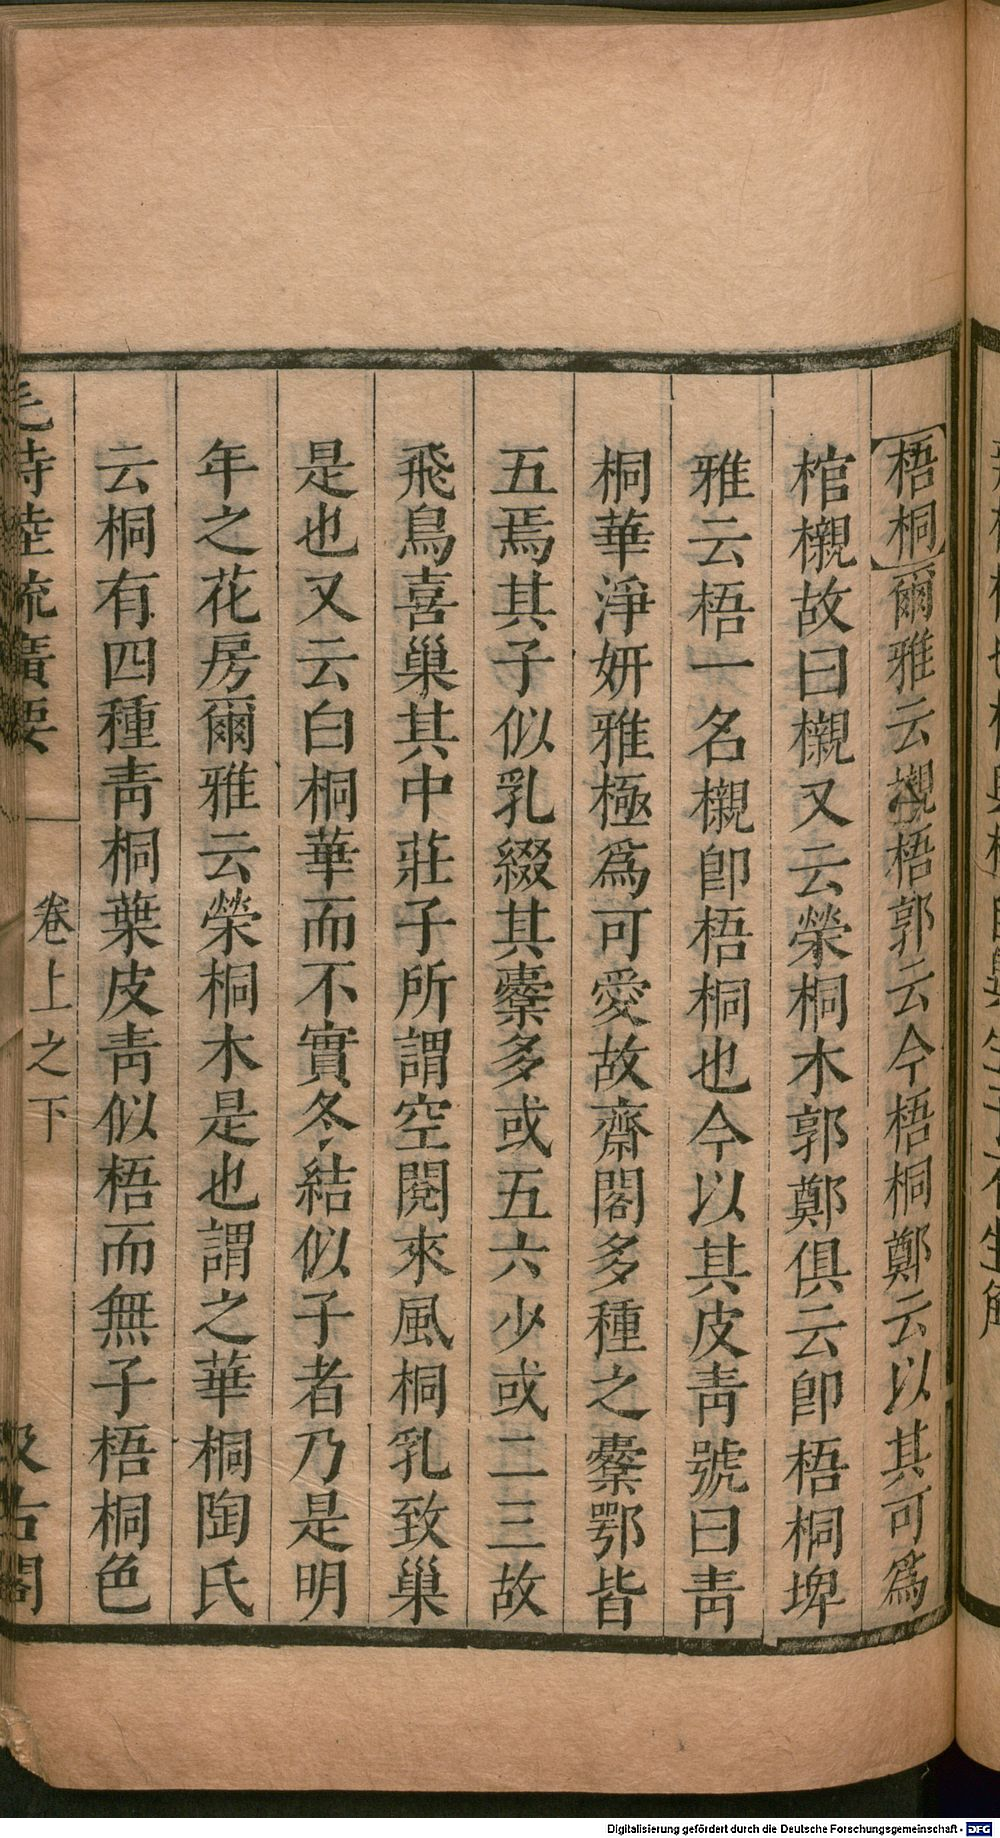 【梧桐】爾雅云櫬梧郭云今梧桐鄭云以其可爲
棺櫬故曰櫬又云榮桐木郭鄭俱云卽梧桐埤
雅云梧一名櫬卽梧桐也今以其皮靑號曰靑
桐華淨妍雅極爲可愛故齋閣多種之櫜鄂皆
五焉其子似乳綴其櫜多或五六少或二三故
飛鳥喜巢其中莊子所謂空閱來風桐乳致巢
是也又云白桐華而不實冬結似子者乃是明
年之花房爾雅云榮桐木是也謂之華桐陶氏
云桐有四種靑桐葉皮靑似梧而無子梧桐色
毛詩陸疏廣要
卷上之下
汲古閣
Digitalisierung gefördert durch die Deutsche Forschungsgemeinschaft - DFG